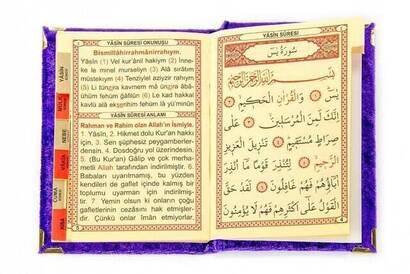 YÂSİN SÛRESİ OKUNUŞU
Bismillâhirrahmânirrahıym.
Yâsîn (1) Vel kur'ânil hakiym (2) İnne-
ke le minel murseliyn (3) Alâ sırâtım
müstekıym (4) Tenziylel aziyzir rahıym
(5) Li tünzira kavmem mâ ünzira âbâ-
ühüm fehüm ğâfilûn (6) Le kad hakkal
kavlü alâ ekserihim fehüm lâ yü'minûn
YÂSİN SÛRESİ ANLAMI
Rahman ve Rahim olan Allah'ın ismiyle.
1. Yâsîn, 2. Hikmet dolu Kur'an hakkı
için, 3. Sen şüphesiz peygamberler-
densin. 4. Dosdoğru yol üzerindesin.
5. (Bu Kur'an) Galip ve çok merha-
metli Allah tarafından indirilmiştir. 6.
Babaları uyarılmamış, bu yüzden
kendileri de gaflet içinde kalmış bir
toplumu uyarman için indirilmiş-
tir. 7. Yemin olsun ki onların çoğu
gafletlerinin cezasını hak etmişler-
dir. Çünkü onlar îman etmiyorlar.
YÂSİN
MÜLK
NEBE
CUMA
سُورَةُ يٰسٓ
بِسْمِ اللّٰهِ الرَّحْمٰنِ الرَّحِيمِ
يٰسٓ ﴿١﴾ وَالْقُرْاٰنِ الْحَكِيمِ ﴿٢﴾
اِنَّكَ لَمِنَ الْمُرْسَلِينَ ﴿٣﴾ عَلٰى
صِرَاطٍ مُسْتَقِيمٍ ﴿٤﴾ تَنْزِيلَ الْعَزِيزِ
الرَّحِيمِ ﴿٥﴾ لِتُنْذِرَ قَوْمًا مَٓا اُنْذِرَ
اٰبَٓاؤُ۬هُمْ فَهُمْ غَافِلُونَ ﴿٦﴾ لَقَدْ حَقَّ
الْقَوْلُ عَلٰٓى اَكْثَرِهِمْ فَهُمْ لَا يُؤْمِنُونَ